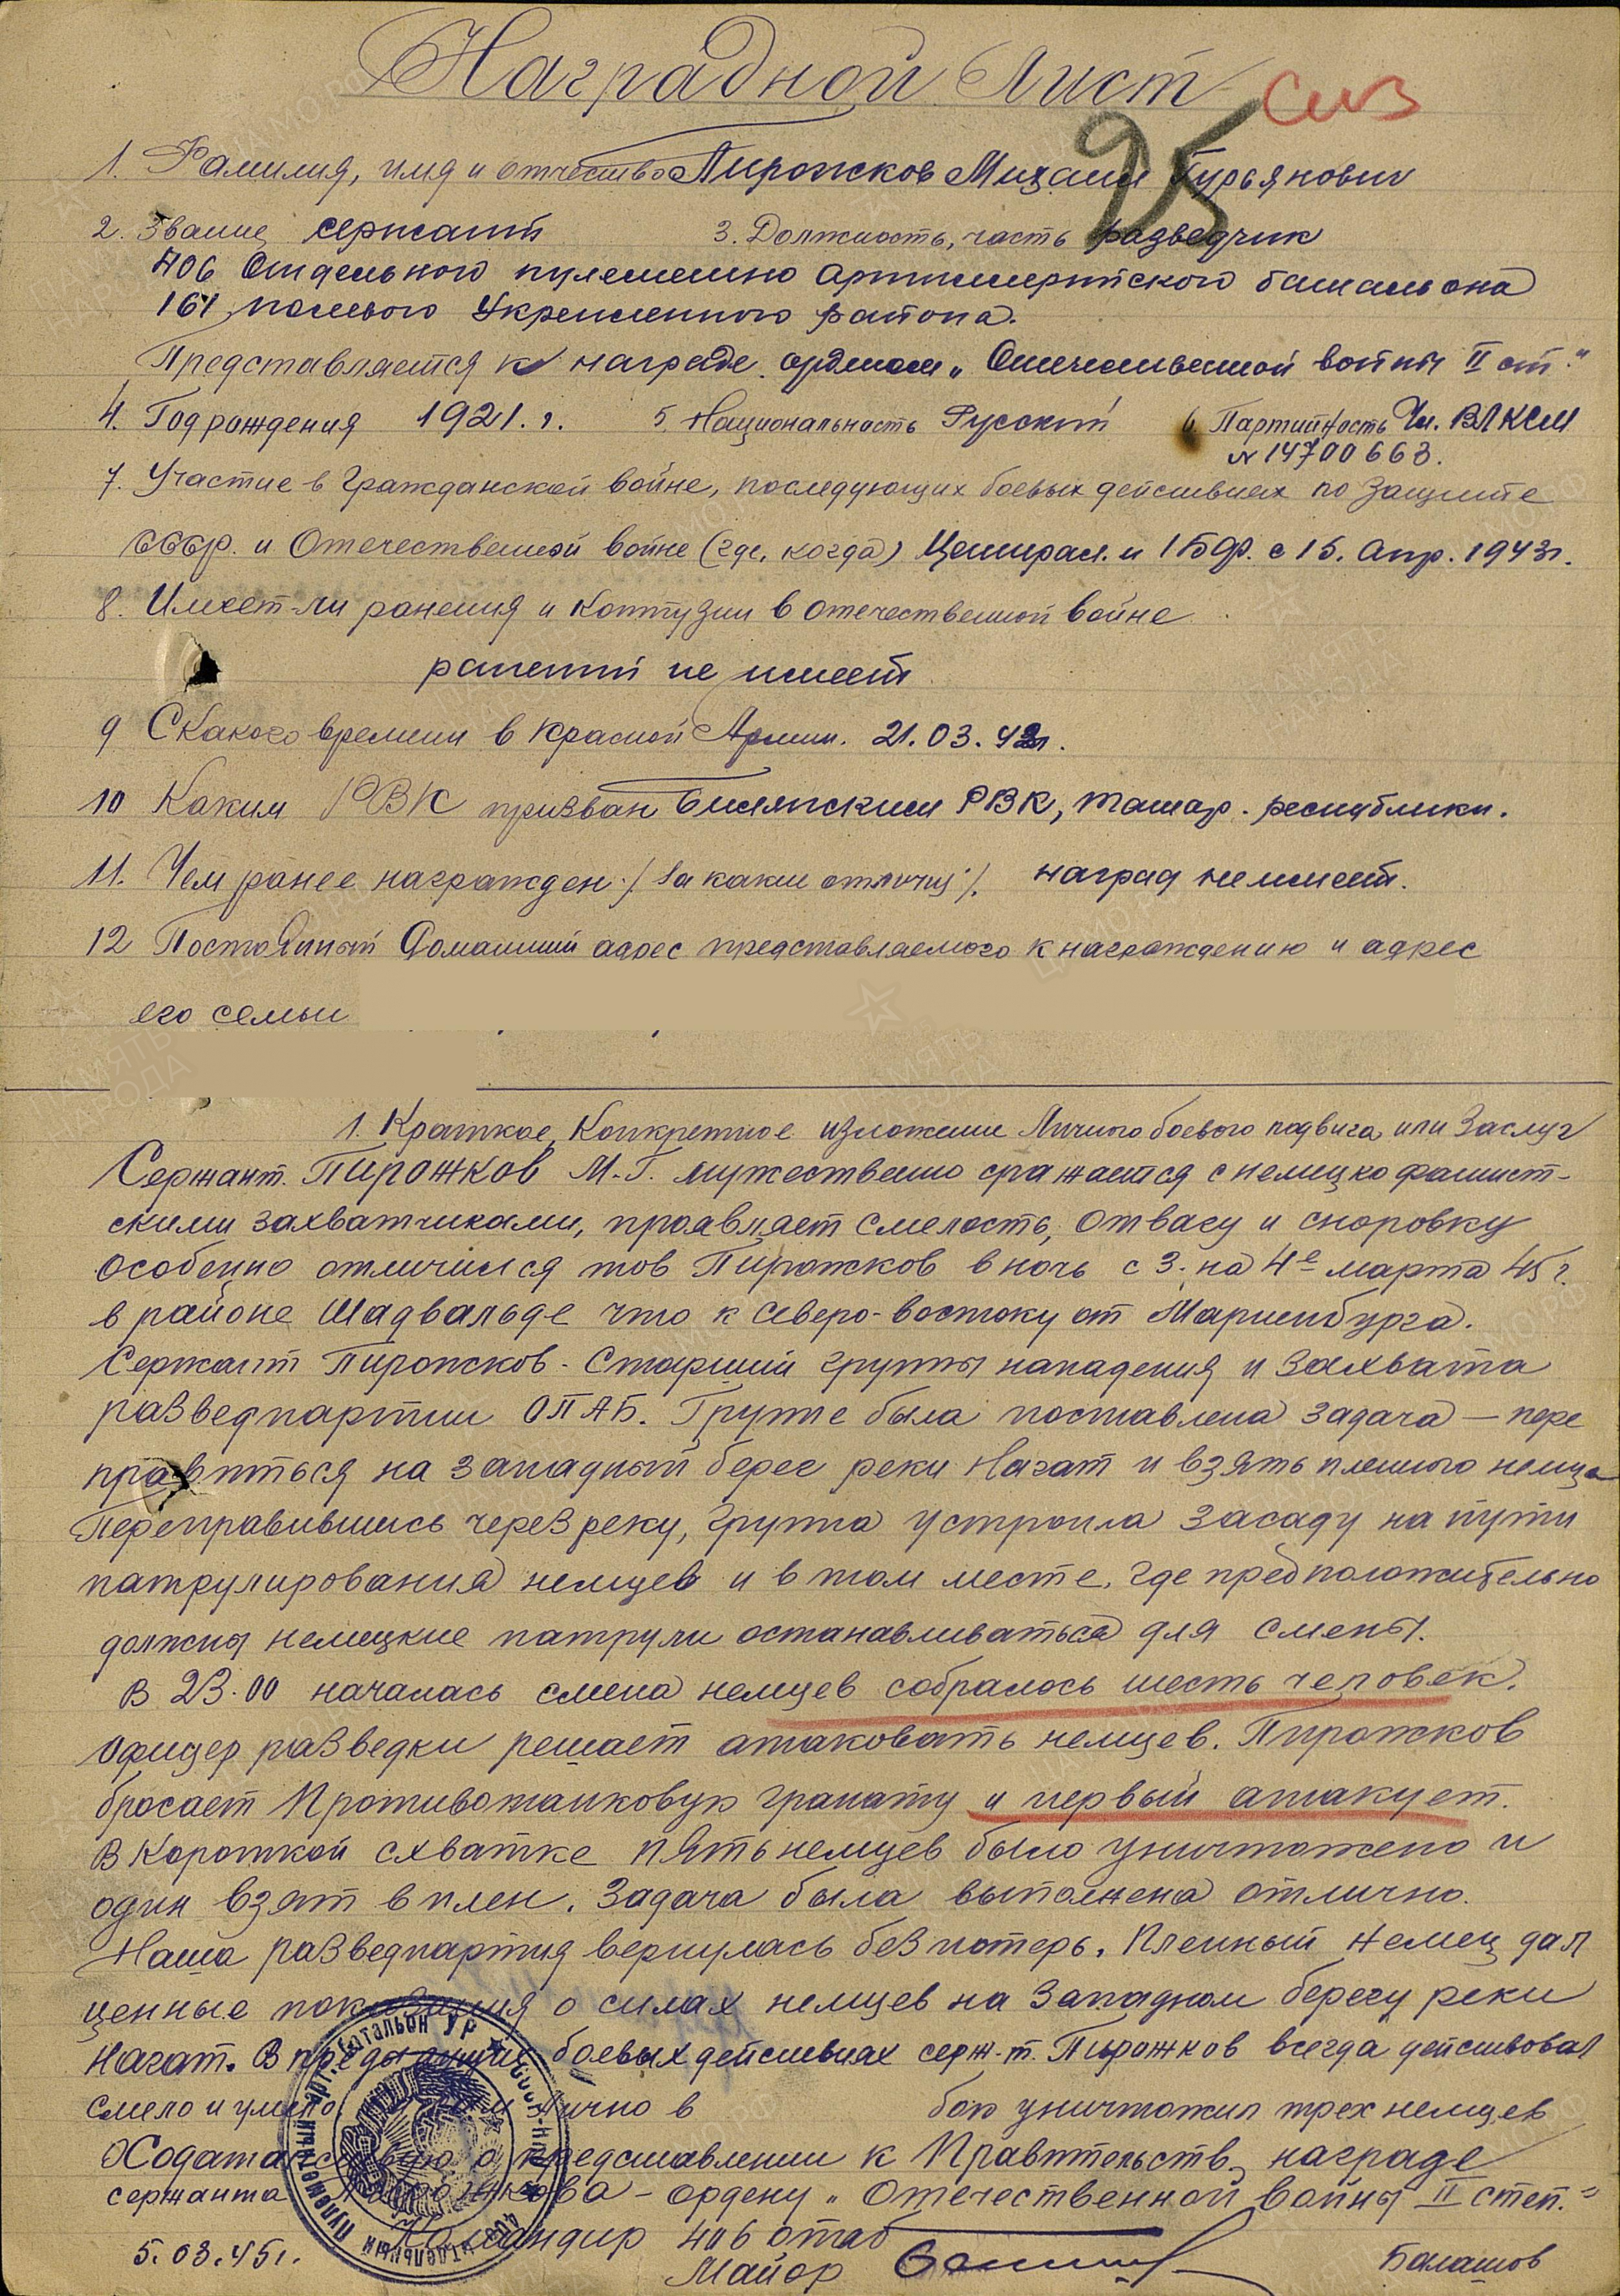 Наградной Лист
сиз
25
1. Фамилия, имя и отчество Пирожков Михаил Гурьянович
2. Звание сержант 3. Должность, часть разведчик
406 Отдельного пулеметно артиллерийского батальона
161 полевого Укрепленного района.
Представляется к награде орденом „Отечественной войны II ст."
4. Год рождения 1921. г. 5. Национальность Русский 6 Партийность Чл. ВЛКСМ
№ 14700663.
7. Участие в Гражданской войне, последующих боевых действиях по защите
СССР. и Отечественной войне (где, когда) Централ. и 1 БФ. с 15. Апр. 1943г.
8. Имеет-ли ранения и контузии в отечественной войне
ранений не имеет
9 С какого времени в Красной Армии. 21.03.42г.
10 Каким РВК призван РВК, Татар. республики.
11. Чем ранее награжден /за какие отличия/. наград не имеет.
12 Постоянный домашний адрес представляемого к награждению и адрес
его семьи
1. Краткое, Конкретное изложение Личного боевого подвига или Заслуг
Сержант. Пирожков М.Г. мужественно сражается с немецко фашист-
скими захватчиками, проявляет смелость, отвагу и сноровку
особенно отличился тов Пирожков в ночь с 3. на 4е марта 45г.
в районе Шадвальде что к северо-востоку от Мариенбурга.
Сержант Пирожков - Старший группы нападения и захвата
разведпартии ОПАБ. Группе была поставлена задача — пере
правиться на западный берег реки Нагат и взять пленного немца
Переправившись через реку, группа устроила засаду на пути
патрулирования немцев и в том месте, где предположительно
должны немецкие патрули останавливаться для смены.
В 23.00 началась смена немцев собралось шесть человек.
Офицер разведки решает атаковать немцев. Пирожков
бросает Противотанковую гранату и первый атакует.
В короткой схватке пять немцев было уничтожено и
один взят в плен. Задача была выполнена отлично.
Наша разведпартия вернулась без потерь. Пленный немец дал
ценные показания о силах немцев на Западном берегу реки
Нагат. В предыдущих боевых действиях серж-т. Пирожков всегда действовал
смело и умело. лично в бою уничтожил трех немцев
Ходатайствую о представлении к Правительств. награде
сержанта Пирожкова - ордену „Отечественной войны II степ."
Командир 406 опаб
5.03.45г. Майор Балашов